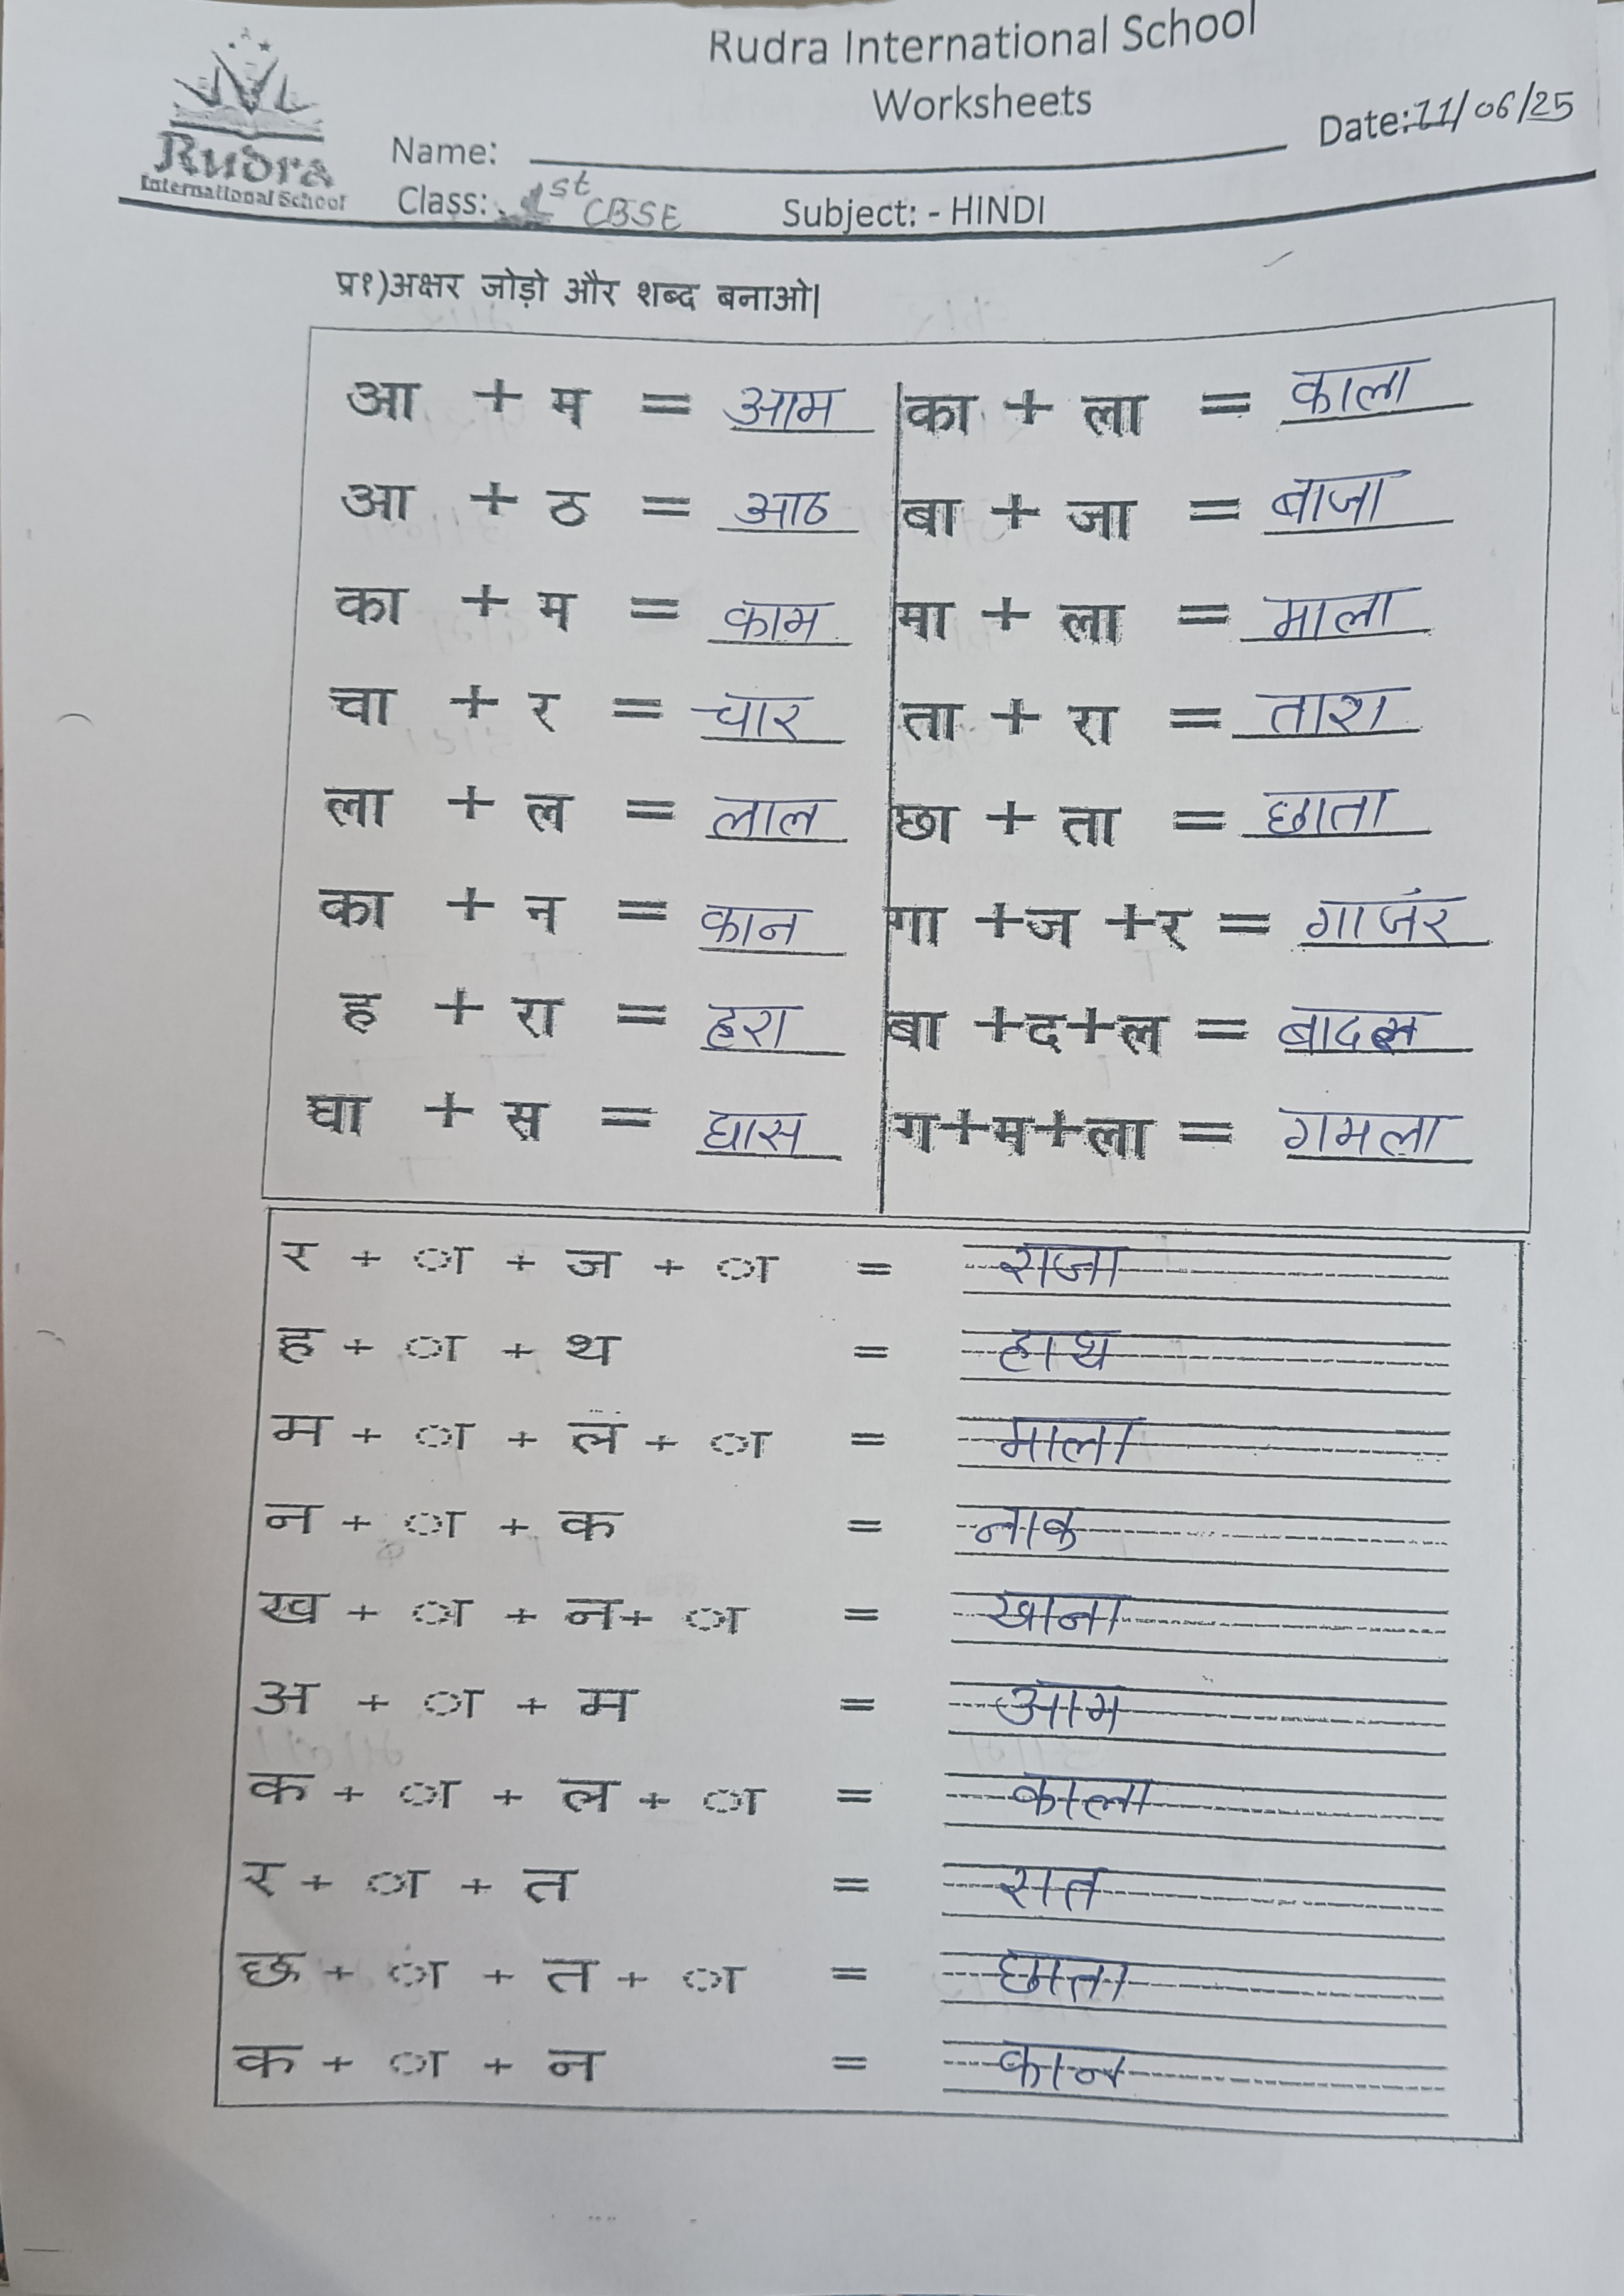 Rudra International School
Worksheets
Rudra
International School
Name:
Date: 11/06/25
Class: 1st CBSE
Subject: - HINDI
प्र१)अक्षर जोड़ो और शब्द बनाओ|
आ + म = आम
आ + ठ = आठ
का + म = काम
चा + र = चार
ला + ल = लाल
का + न = कान
ह + रा = हरा
घा + स = घास
का + ला = काला
बा + जा = बाजा
मा + ला = माला
ता + रा = तारा
छा + ता = छाता
गा +ज +र = गाजर
बा +द+ल = बादल
ग+म+ला = गमला
र + ा + ज + ा = राजा
ह + ा + थ = हाथ
म + ा + ल + ा = माला
न + ा + क = नाक
ख + ा + न+ ा = खाना
अ + ा + म = आम
क + ा + ल + ा = काला
र + ा + त = रात
छ + ा + त + ा = छाता
क + ा + न = कान